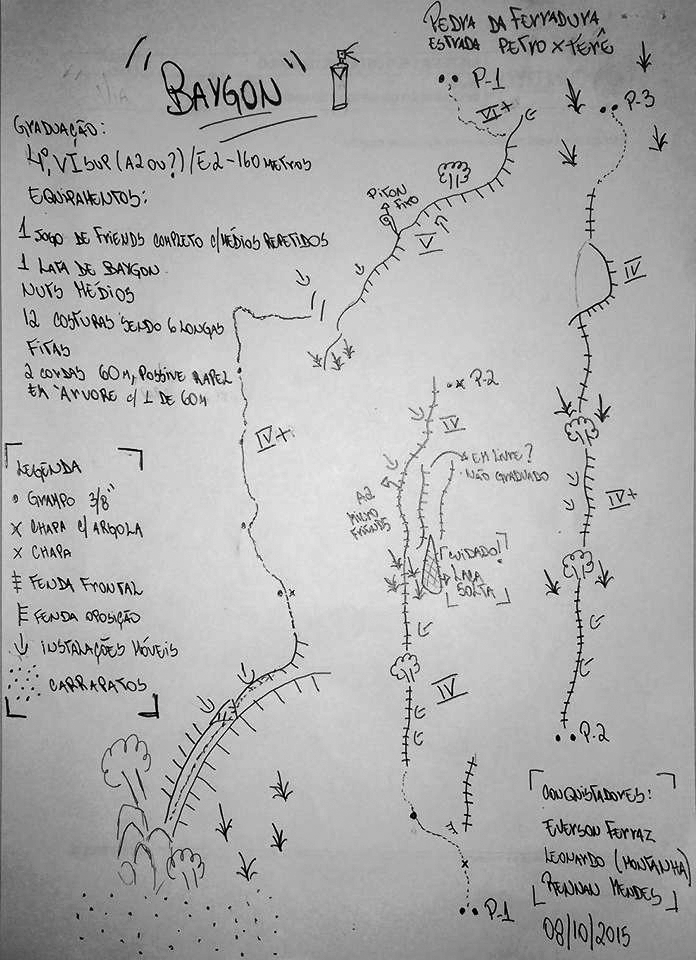 PEDRA DA FERRADURA
ESTRADA PETRO X TERÊ
"BAYGON"
GRADUAÇÃO:
4º, VI SUP (A2 OU?) / E2 - 160 METROS
EQUIPAMENTOS:
1 JOGO DE FRIENDS COMPLETO C/ MÉDIOS REPETIDOS
1 LATA DE BAYGON
NUTS MÉDIOS
12 COSTURAS SENDO 6 LONGAS
FITAS
2 CORDAS 60 M, POSSIVE RAPEL
EM ÁRVORE C/ 1 DE 60 M
LEGENDA
GRAMPO 3/8"
CHAPA C/ ARGOLA
CHAPA
FENDA FRONTAL
FENDA OPOSIÇÃO
INSTALAÇÕES MÓVEIS
CARRAPATOS
P-1
VI+
PITON
FIXO
V
IV+
P-2
IV
EM LIVRE?
NÃO GRADUADO
A2
MICRO
FRIENDS
CUIDADO!
LACA
SOLTA
IV
P-1
P-3
IV
IV+
P-2
CONQUISTADORES:
EVERSON FERRAZ
LEONARDO (MONTANHA)
RENNAN MENDES
08/10/2015